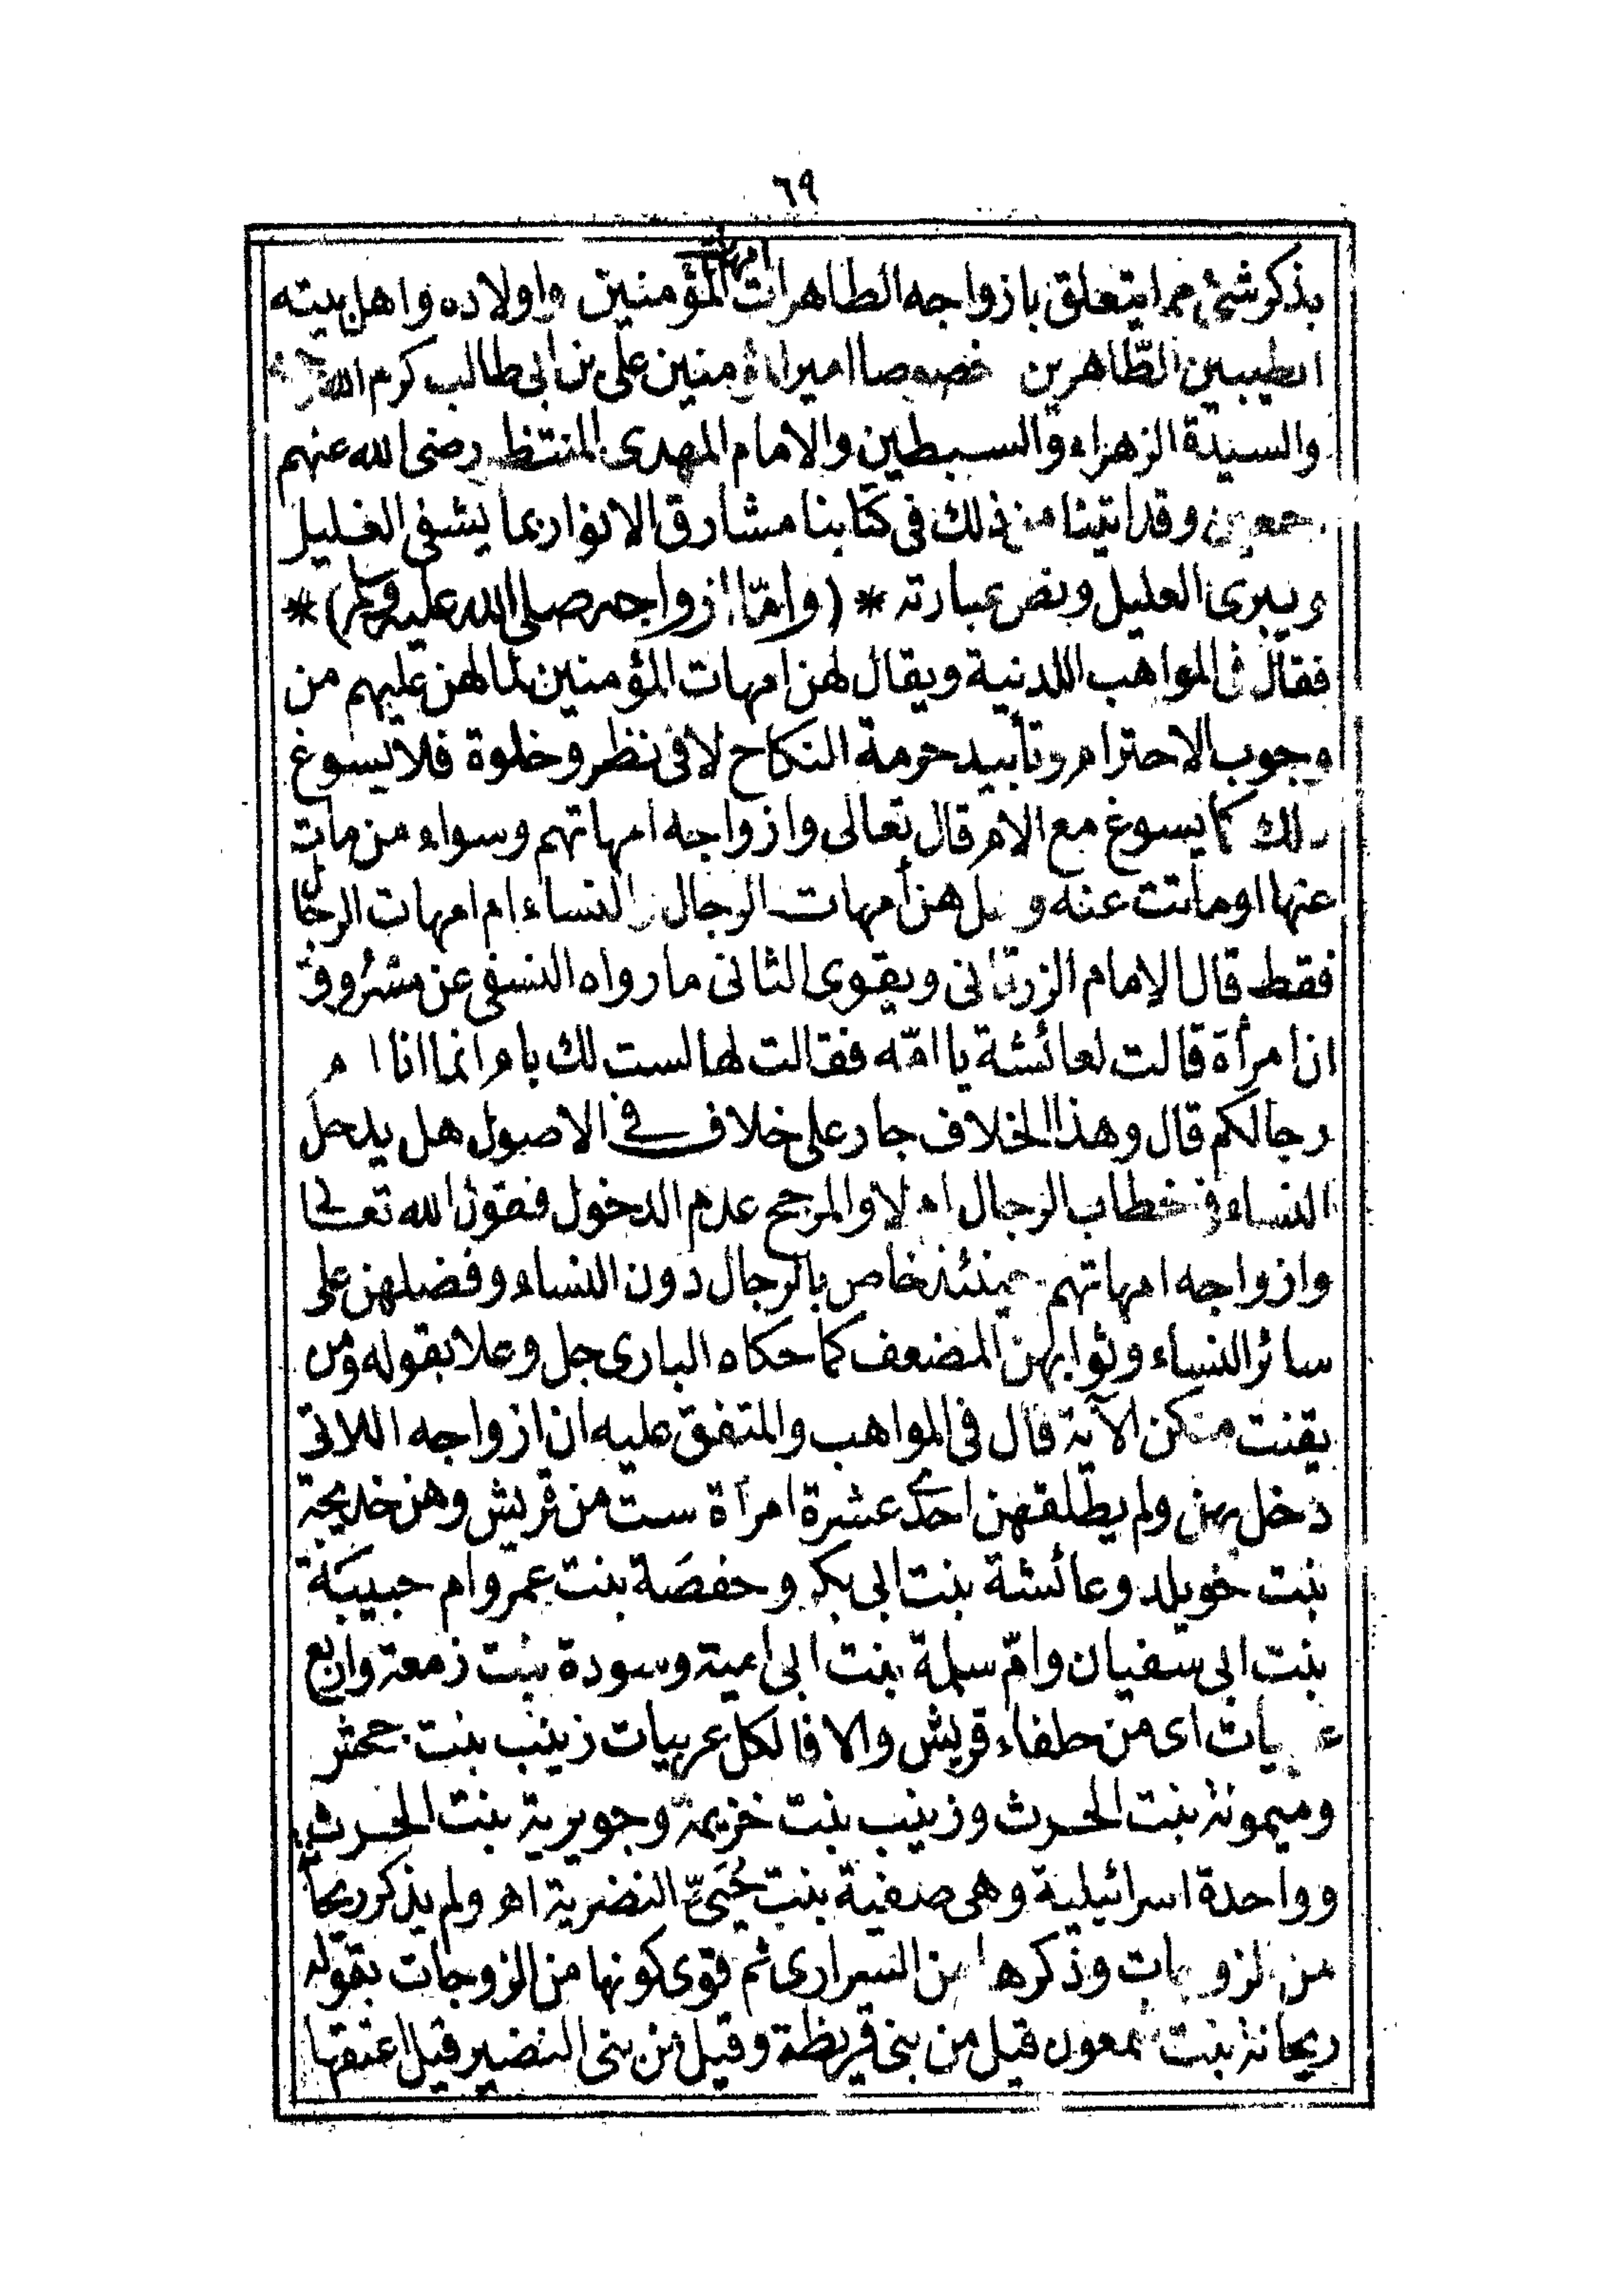 ٦٩
بذكر شئ مما يتعلق بازواجه الطاهرات امهات المؤمنين واولاده واهل بيته
الطيبين الطّاهرين خصوصا امير المؤمنين على بن ابى طالب كرم الله
والسيدة الزهراء والسبطين والامام المهدى المنتظر رضى الله عنهم
اجمعين وقد اتينا من ذلك فى كتابنا مشارق الانوار بما يشفى الغليل
ويبرى العليل ونص عبارته * (وامّا ازواجه صلى الله عليه وسلم) *
فقال فى المواهب اللدنية ويقال لهن امهات المؤمنين لما لهن عليهم من
وجوب الاحترام وتأبيد حرمة النكاح لا فى نظر وخلوة فلا يسوغ
ذلك كما يسوغ مع الام قال تعالى وازواجه امهاتهم وسواء من مات
عنها او ماتت عنه وهل هن أمهات الرجال والنساء ام امهات الرجال
فقط قال الامام الزرقانى ويقوى الثانى ما رواه النسفى عن مسروق
ان امرأة قالت لعائشة يا امّه فقالت لها لست لك بام انما انا ام
رجالكم قال وهذا الخلاف جار على خلاف فى الاصول هل يدخل
النساء فى خطاب الرجال ام لا والمرجح عدم الدخول فقول الله تعالى
وازواجه امهاتهم حينئذ خاص بالرجال دون النساء وفضلهن على
سائر النساء وثوابهن المضعف كما حكاه البارى جل وعلا بقوله ومن
يقنت منكن الآية قال فى المواهب والمتفق عليه ان ازواجه اللاتى
دخل بهن ولم يطلقهن احدى عشرة امرأة ست من قريش وهن خديجة
بنت خويلد وعائشة بنت ابى بكر وحفصَة بنت عمر وام حبيبَة
بنت ابى سفيان وامّ سلمة بنت ابى امية وسودة بنت زمعة واربع
عربيات اى من حلفاء قريش والا فالكل عربيات زينب بنت جحش
وميمونة بنت الحرث وزينب بنت خزيمة وجويرية بنت الحرث
وواحدة اسرائيلية وهى صفية بنت حُيَىّ النضرية اهـ ولم يذكر ريحانة
من الزوجات وذكرها من السرارى ثم قوى كونها من الزوجات بقوله
ريحانة بنت شمعون قيل من بنى قريظة وقيل من بنى النضير قيل اعتقها